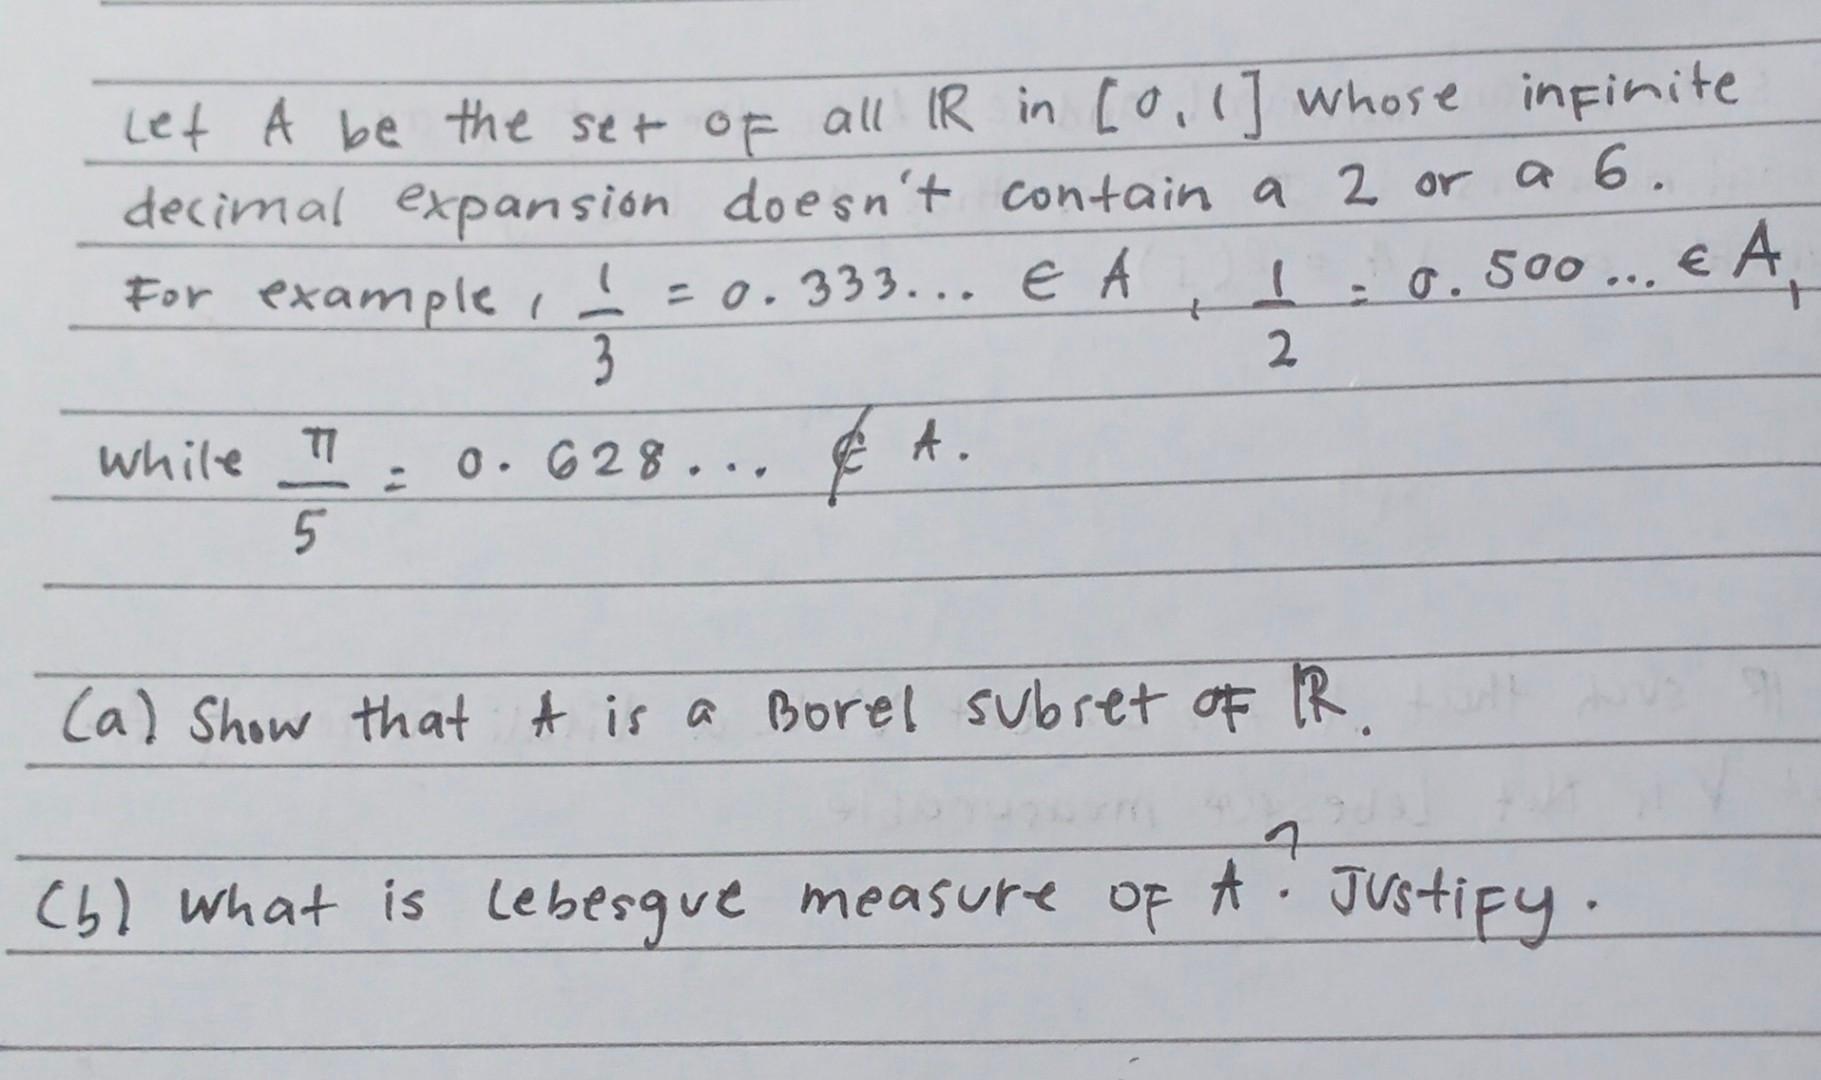 Let A be the set of all ℝ in [0,1] whose infinite
decimal expansion doesn't contain a 2 or a 6.
For example, 1/3 = 0.333... ∈ A, 1/2 = 0.500... ∈ A,
while π/5 = 0.628... ∉ A.
(a) Show that A is a Borel subset of ℝ.
(b) What is Lebesgue measure of A? Justify.